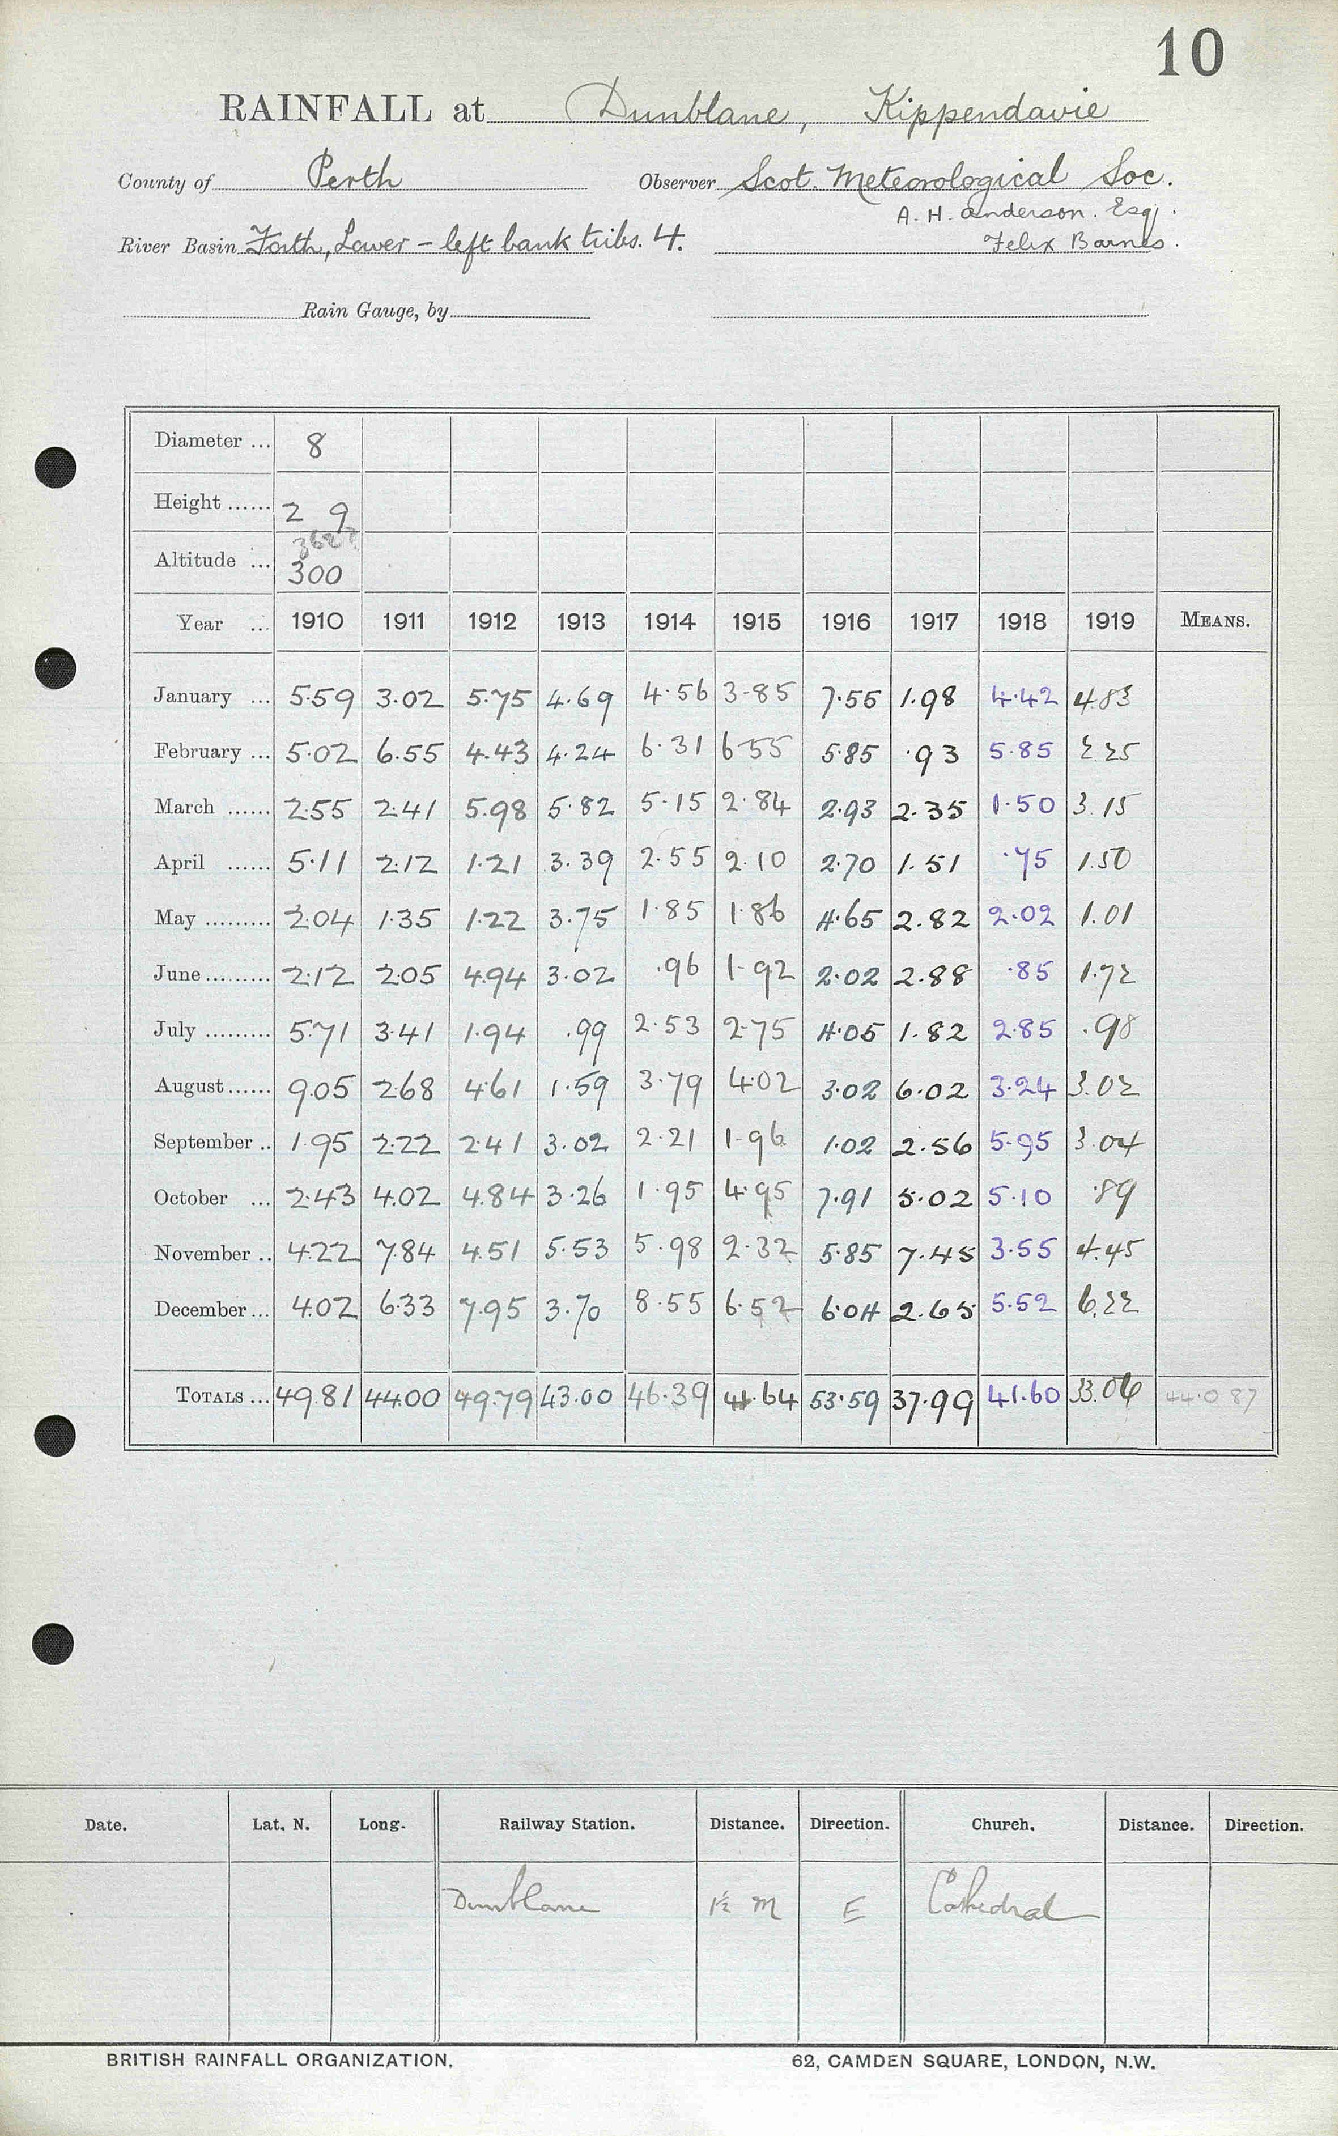 10
RAINFALL at Dunblane, Kippendavie
County of Perth Observer Scot. Meteorological Soc.
A. H. Anderson. Esq.
River Basin Forth, Lower - left bank tribs. 4. Felix Barnes.
Rain Gauge, by
Diameter ... 8
Height ...... 2 9
362?
Altitude ... 300
Year ... 1910 1911 1912 1913 1914 1915 1916 1917 1918 1919 MEANS.
January ... 5.59 3.02 5.75 4.69 4.56 3.85 7.55 1.98 4.42 4.83
February ... 5.02 6.55 4.43 4.24 6.31 6.55 5.85 .93 5.85 2.25
March ...... 2.55 2.41 5.98 5.82 5.15 2.84 2.93 2.35 1.50 3.15
April ...... 5.11 2.12 1.21 3.39 2.55 2.10 2.70 1.51 .75 1.50
May ......... 2.04 1.35 1.22 3.75 1.85 1.86 4.65 2.82 2.02 1.01
June ......... 2.12 2.05 4.94 3.02 .96 1.92 2.02 2.88 .85 1.72
July ......... 5.71 3.41 1.94 .99 2.53 2.75 4.05 1.82 2.85 .98
August ...... 9.05 2.68 4.61 1.59 3.79 4.02 3.02 6.02 3.24 3.02
September .. 1.95 2.22 2.41 3.02 2.21 1.96 1.02 2.56 5.95 3.04
October ... 2.43 4.02 4.84 3.26 1.95 4.95 7.91 5.02 5.10 .89
November .. 4.22 7.84 4.51 5.53 5.98 2.32 5.85 7.45 3.55 4.45
December ... 4.02 6.33 7.95 3.70 8.55 6.52 6.04 2.65 5.52 6.22
TOTALS ... 49.81 44.00 49.79 43.00 46.39 41.64 53.59 37.99 41.60 33.06 44.087
Date. Lat. N. Long. Railway Station. Distance. Direction. Church. Distance. Direction.
Dunblane 1½ M E Cathedral
BRITISH RAINFALL ORGANIZATION. 62, CAMDEN SQUARE, LONDON, N.W.